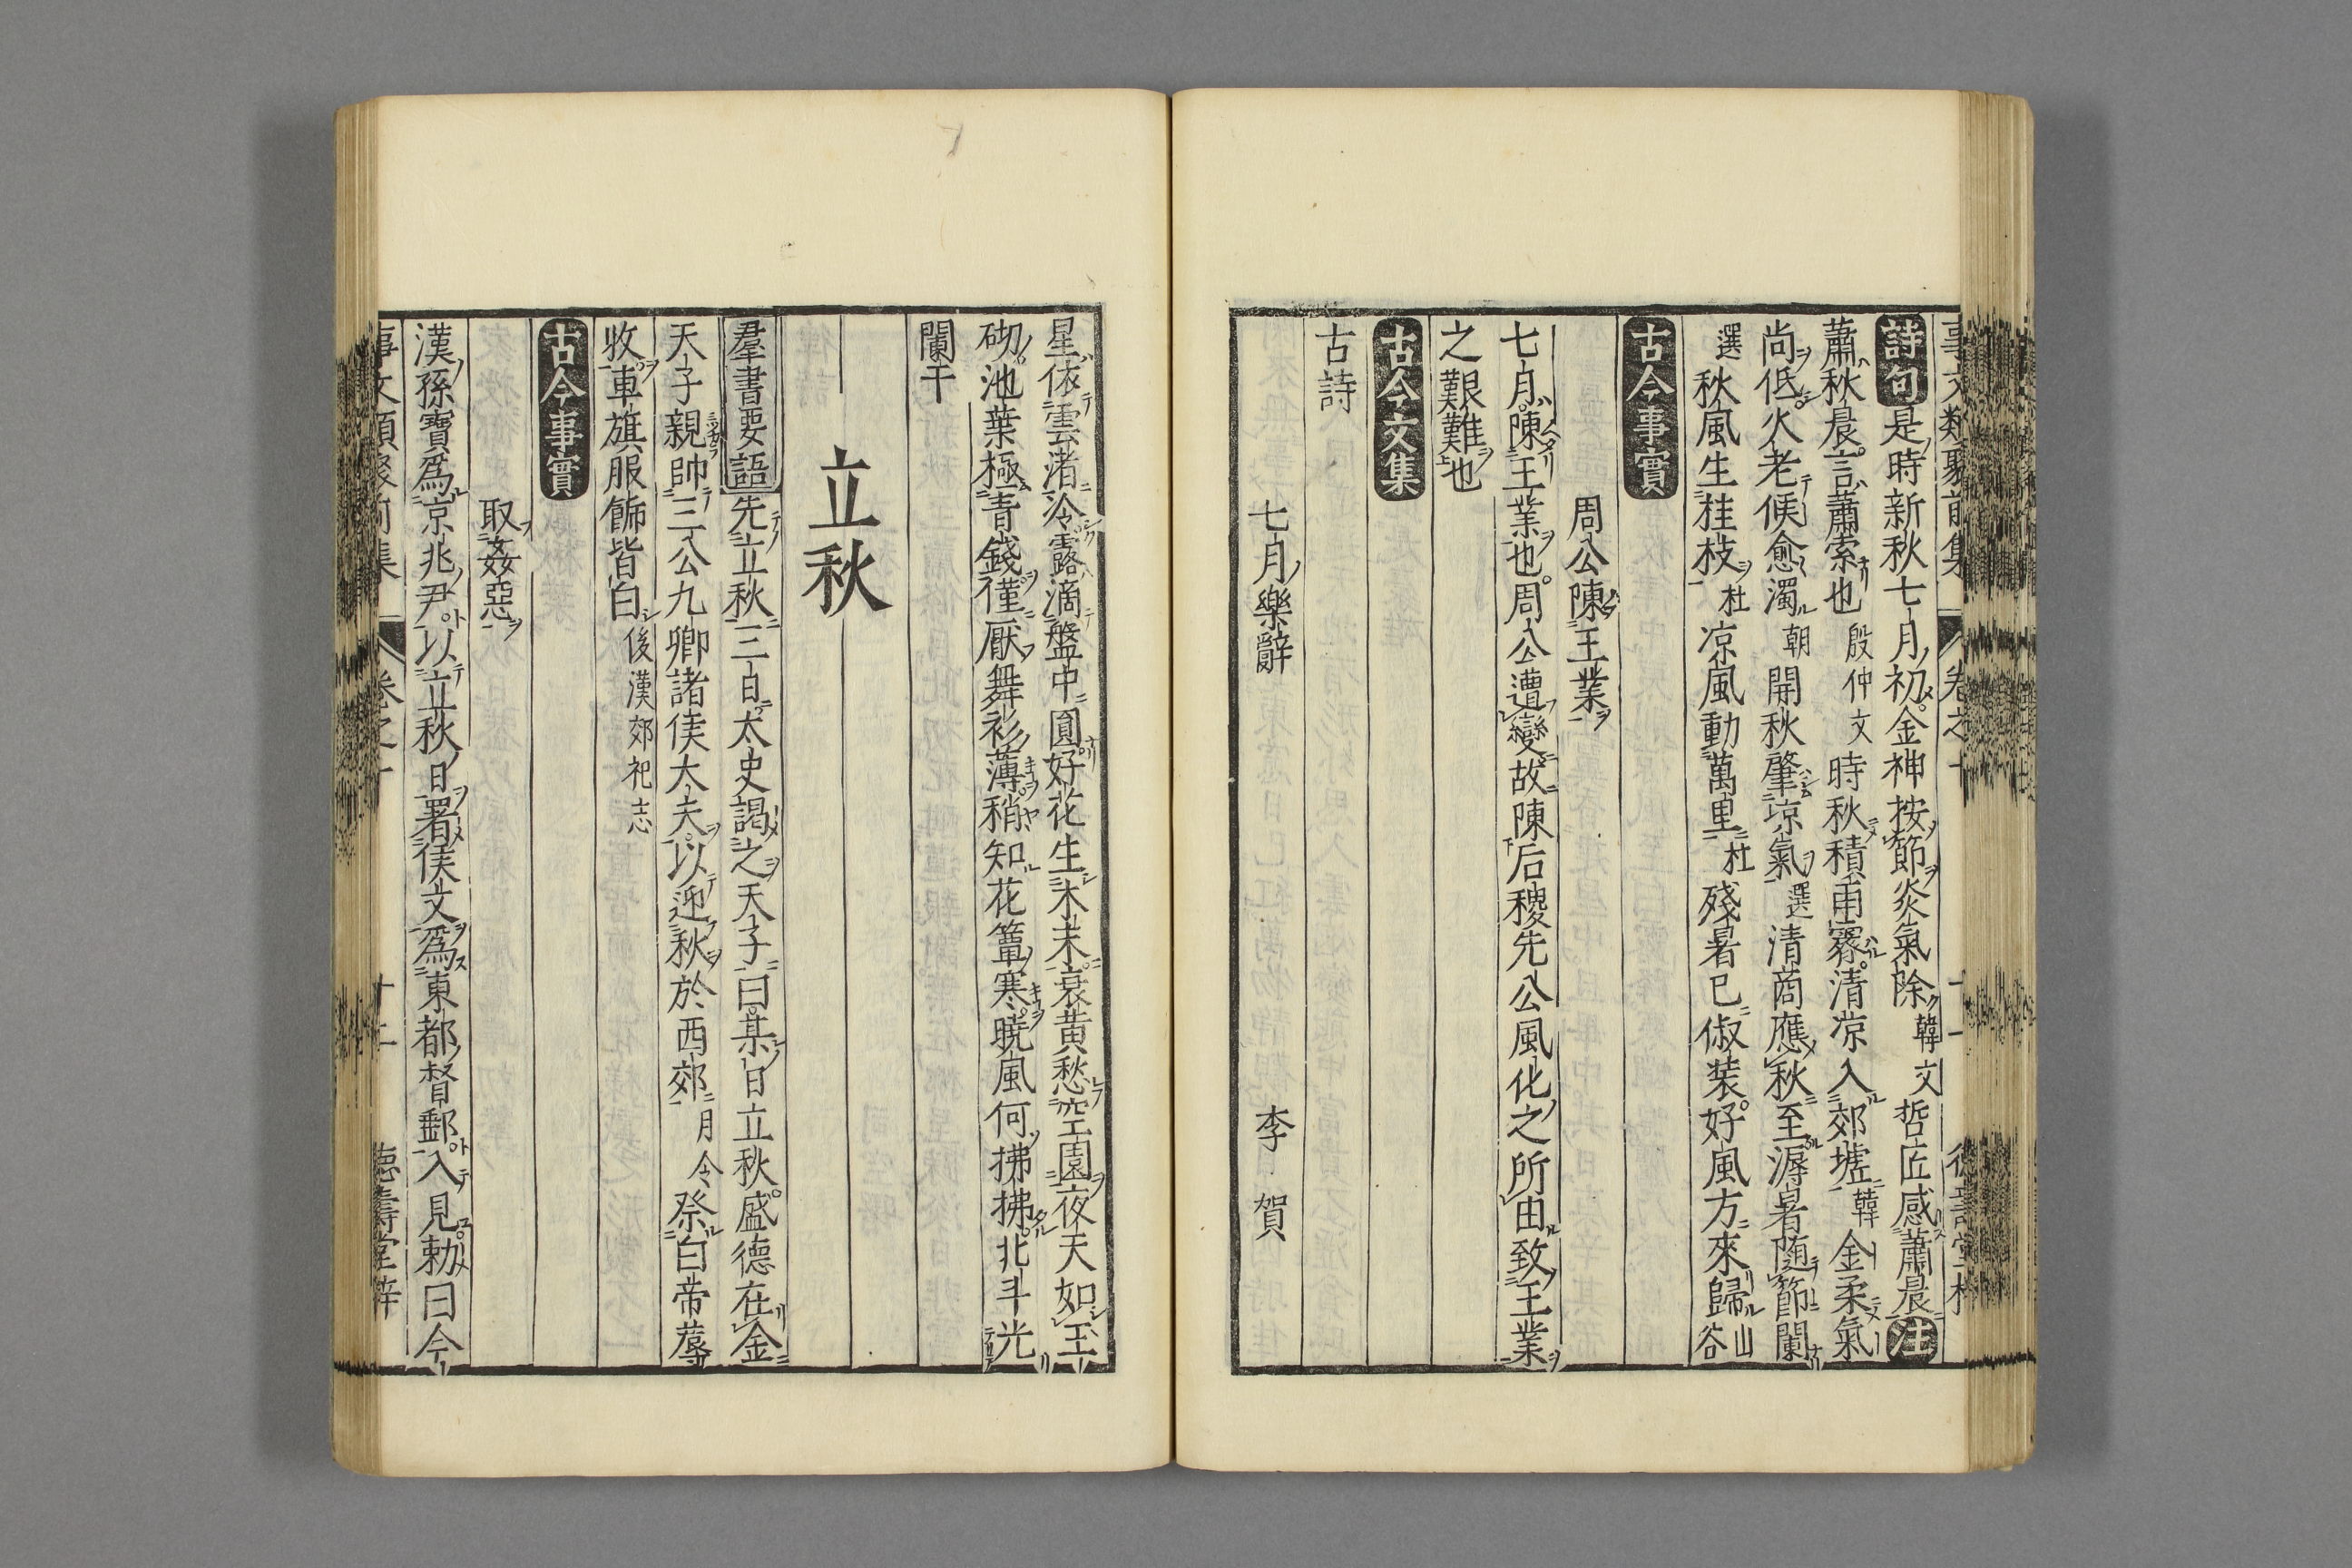 事文類聚前集 卷之十 十一
詩句是時新秋七月初金神按節炎氣除韓文哲匠感蕭晨注
蕭秋晨言蕭索也殷仲文時秋積雨霽清凉入郊墟韓金柔氣
尚低火老候愈濁朝開秋肇凉氣選清商應秋至溽暑随節闌
選秋風生桂枝杜凉風動萬里杜殘暑已俶装好風方來歸山谷
古今事實
周公陳王業
七月陳王業也周公遭變故陳后稷先公風化之所由致王業
之艱難也
古今文集
古詩
七月樂辭 李賀
星依雲渚泠露滴盤中圓好花生木末衰黄愁空園夜天如玉
砌池葉極青錢僅厭舞衫薄稍知花簟寒曉風何拂拂北斗光
闌干
立秋
羣書要語先立秋三日太史謁之天子曰某日立秋盛德在金
天子親帥三公九卿諸侯大夫以迎秋於西郊月令祭白帝蓐
收車旗服飾皆白後漢郊祀志
古今事實
取姦惡
漢孫寶爲京兆尹以立秋日署侯文爲東都督郵入見勅曰今
事文類聚前集 卷之十 十二 德壽堂梓